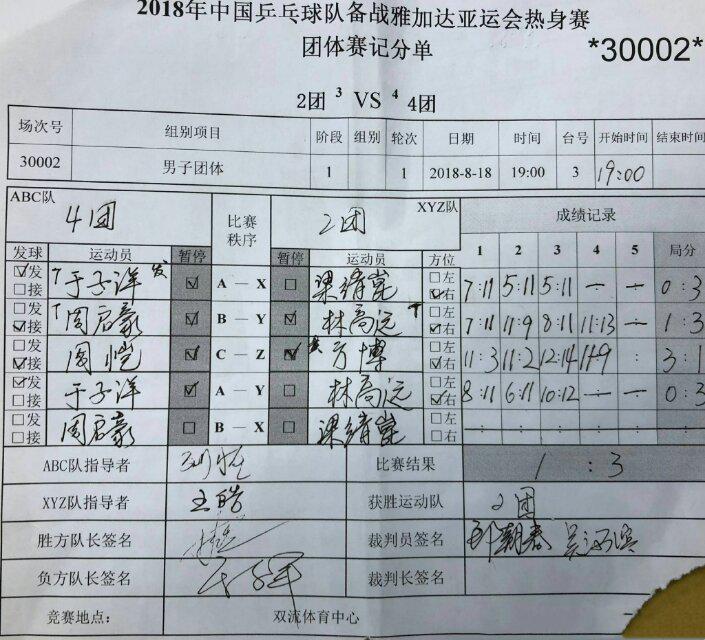 2018年中国乒乓球队备战雅加达亚运会热身赛
团体赛记分单 *30002*
2团 3 VS 4 4团
场次号 组别项目 阶段 组别 轮次 日期 时间 台号 开始时间 结束时间
30002 男子团体 1 1 2018-8-18 19:00 3 19:00
ABC队 4团 比赛秩序 2团 XYZ队 成绩记录
发球 运动员 暂停 暂停 运动员 方位 1 2 3 4 5 局分
发 接 T 于子洋 发 A — X 梁靖崑 左 右 7:11 5:11 5:11 — — 0:3
发 接 T 周启豪 B — Y 林高远 T 左 右 7:11 11:9 8:11 11:13 — 1:3
发 接 周恺 C — Z 方博 左 右 11:3 11:2 12:14 11:9 : 3:1
发 接 于子洋 A — Y 林高远 左 右 8:11 6:11 10:12 — — 0:3
发 接 周启豪 B — X 梁靖崑 左 右 : : : : : :
ABC队指导者 比赛结果 1:3
XYZ队指导者 王皓 获胜运动队 2团
胜方队长签名 裁判员签名
负方队长签名 裁判长签名
竞赛地点: 双流体育中心